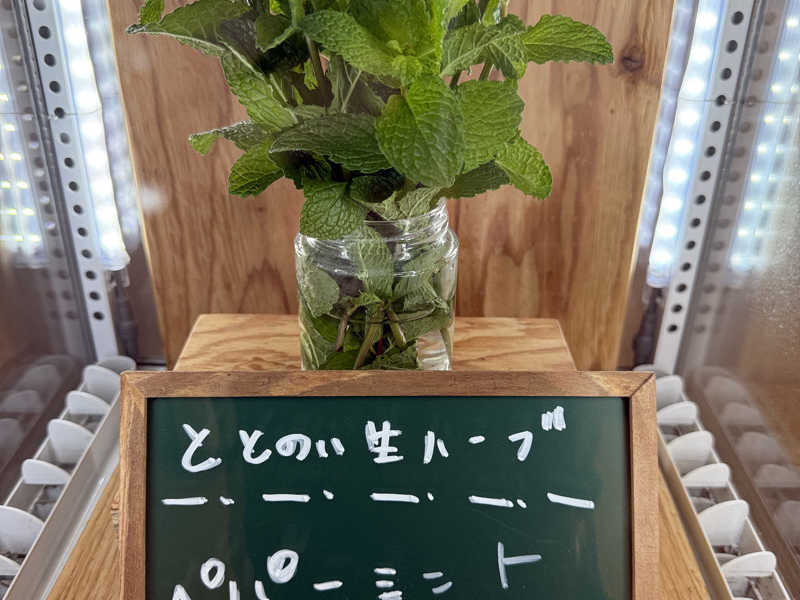 ととのい生ハーブ
ペパーミント